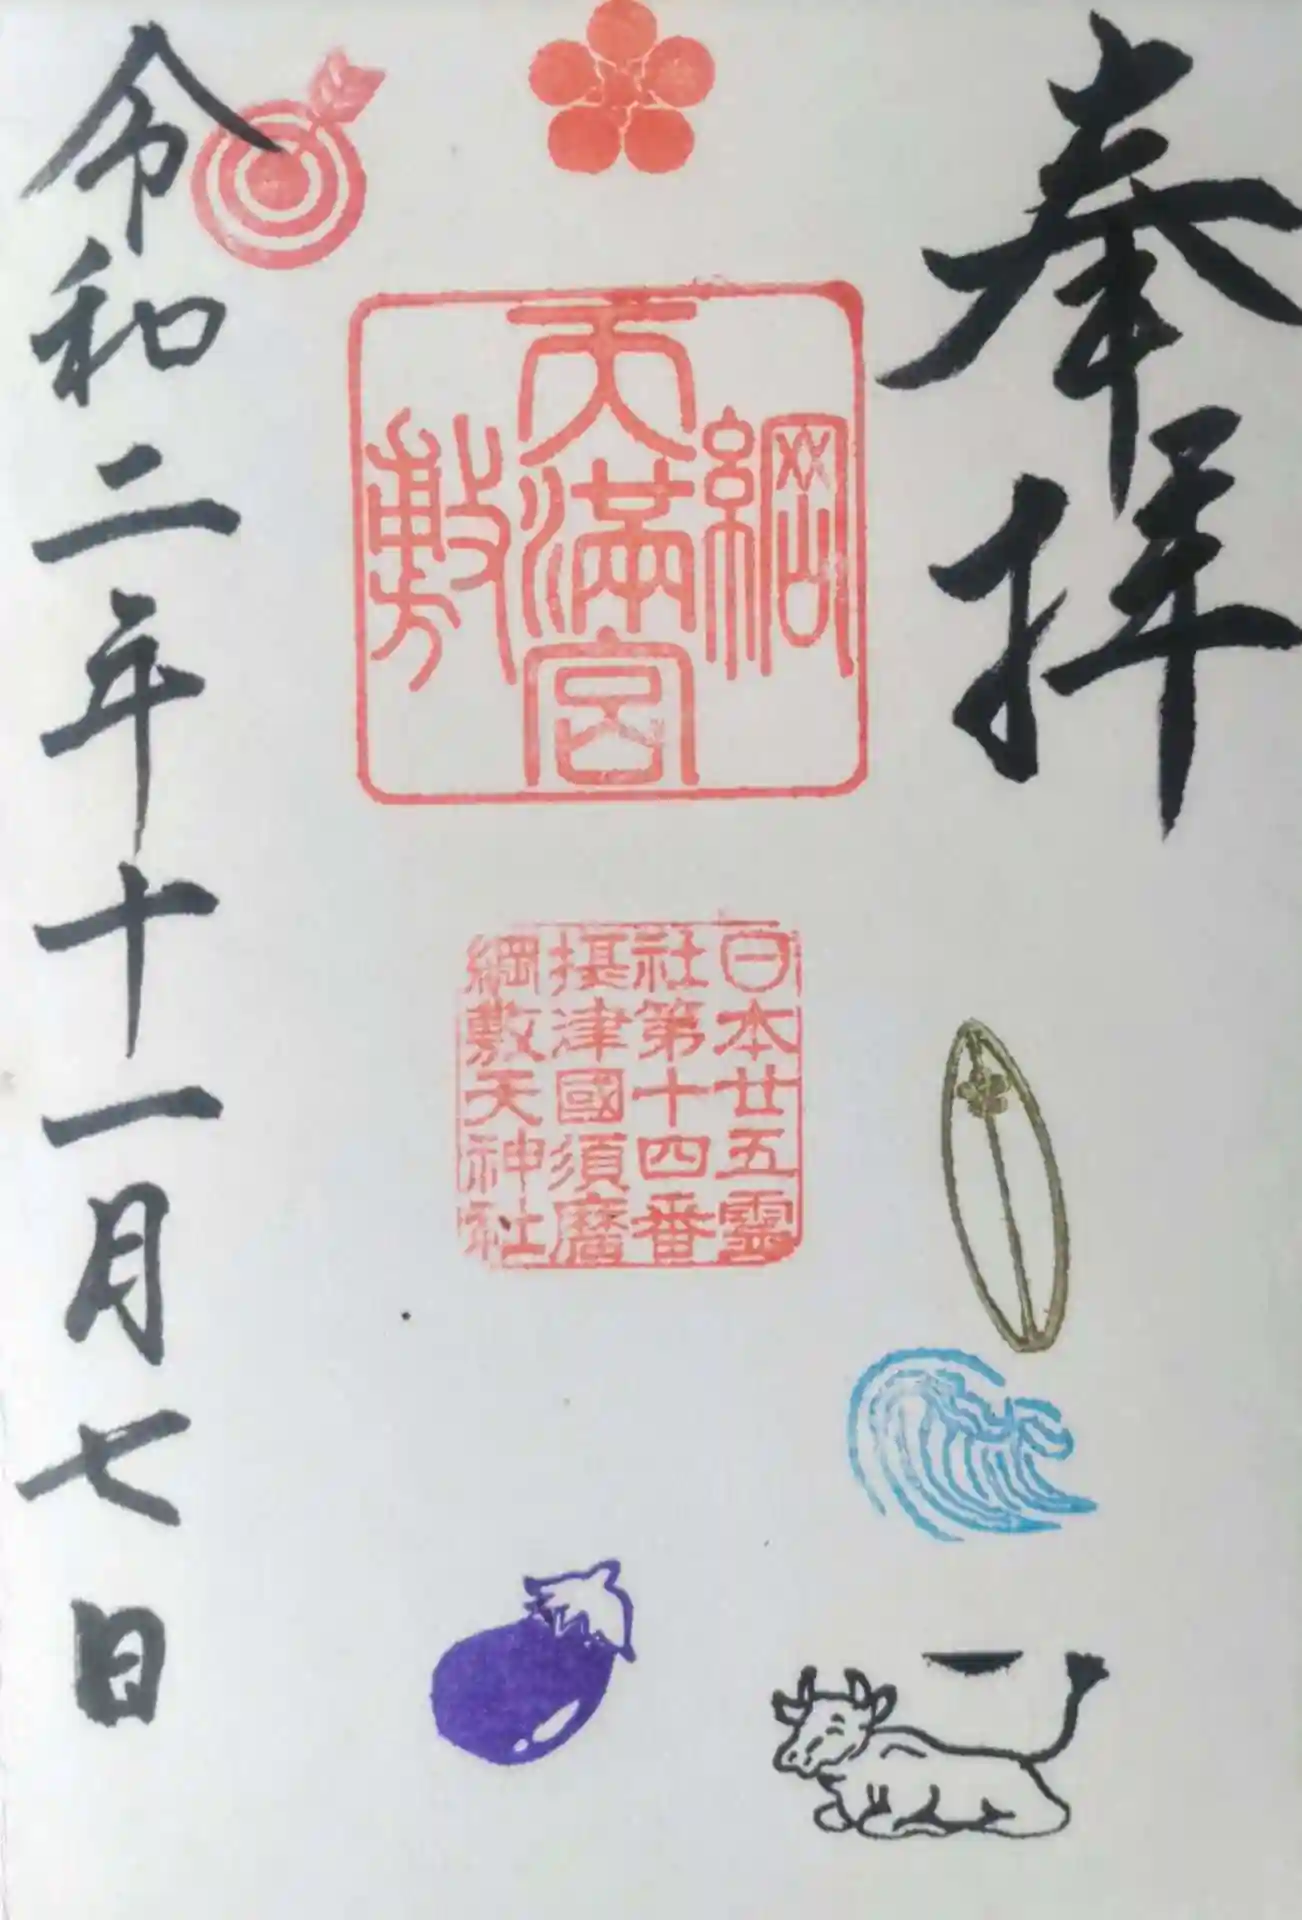 奉拝
綱
天満宮
敷
日本廿五靈
社第十四番
摂津國須磨
綱敷天神社
令和二年十一月七日